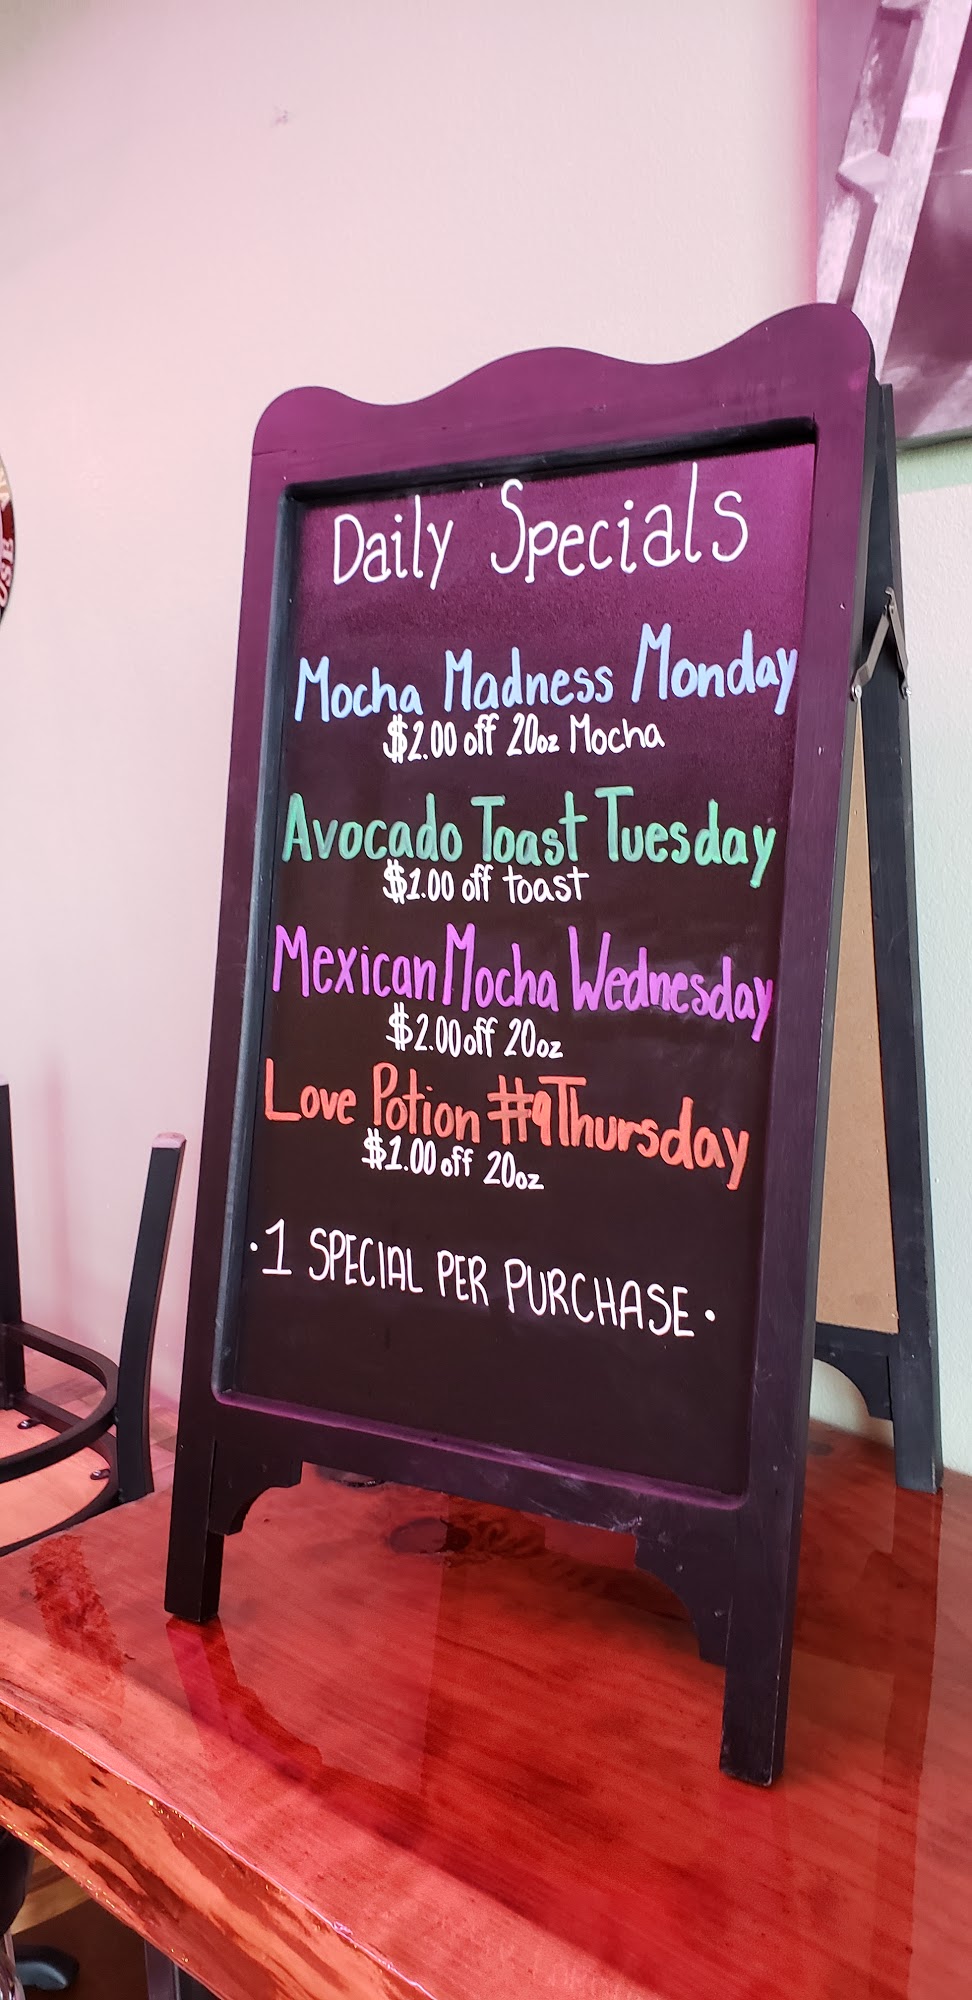 Daily Specials
Mocha Madness Monday
$2.00 off 20oz Mocha
Avocado Toast Tuesday
$1.00 off toast
Mexican Mocha Wednesday
$2.00 off 20oz
Love Potion #9 Thursday
$1.00 off 20oz
·1 SPECIAL PER PURCHASE·